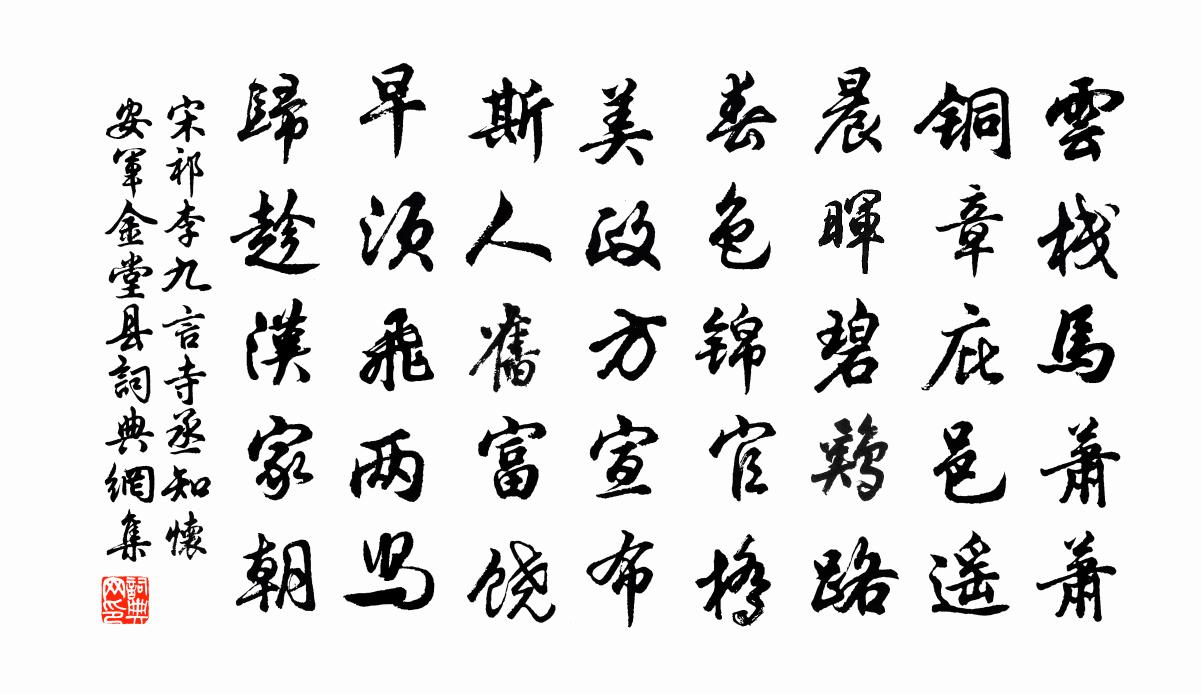 雲栈馬蕭蕭
铜章庇邑遥
晨暉碧鷄路
春色锦官橋
美政方宣布
斯人舊富饶
早須飛两舄
歸趁漢家朝
宋祁李九言寺丞知懷
安軍金堂县詞典網集